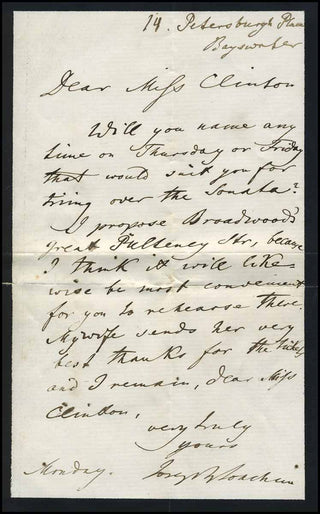 14. Petersburgh Place
Bayswater
Dear Miss Clinton
Will you name any
time on Thursday or Friday
that would suit you for
trying over the Sonata?
I propose Broadwood's
great Pulteney Str, because
I think it will like-
wise be most convenient
for you to rehearse there.
My wife sends her very
best thanks for the tickets
and I remain, dear Miss
Clinton,
very truly
yours
Monday. Joseph Joachim